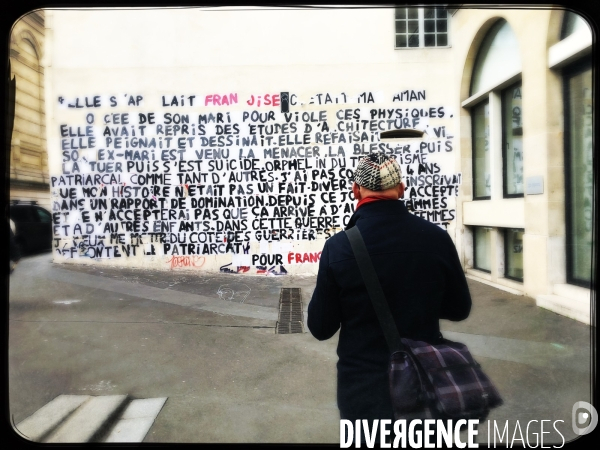 "ELLE S'AP LAIT FRAN OISE C'ETAIT MA AMAN
O CEE DE SON MARI POUR VIOLE CES PHYSIQUES.
ELLE AVAIT REPRIS DES ETUDES D'A CHITECTURE
ELLE PEIGNAIT ET DESSINAIT. ELLE REFAISAIT VI
SO EX-MARI EST VENU LA MENACER LA BLESSER PUIS
LA TUER PUIS S'EST SUICIDE. ORPHELIN DU T ISME
PATRIARCAL COMME TANT D'AUTRES. J'AI PAS CO INSCRIVAI
QUE MON HISTOIRE N'ETAIT PAS UN FAIT-DIVERS J'ACCEPTE
DANS UN RAPPORT DE DOMINATION. DEPUIS CE JOU
ET E N'ACCEPTERAI PAS QUE ÇA ARRIVE A D'A EMMES
ET A D'AUTRES ENFANTS. DANS CETTE GUERRE
J VEUX ME METTRE DU COTE DES GUERRIERES
FONTENT LE PATRIARCAT
POUR FRANÇ
DIVERGENCE IMAGES
D